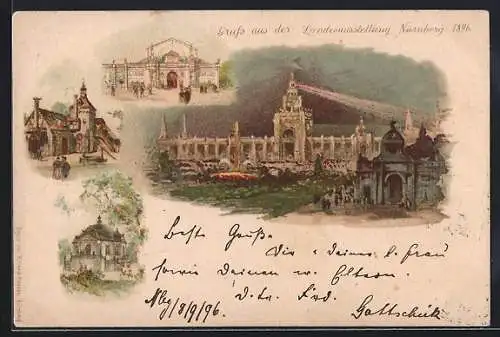 Gruß aus der Landesausstellung Nürnberg 1896.
Beste Grüße
Dir & Deiner l. Frau
sowie Deinen w. Eltern
Nbg 18/9/96.
Gottschick